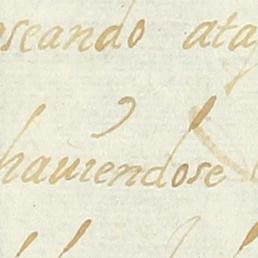 oseando ata
hauiendose